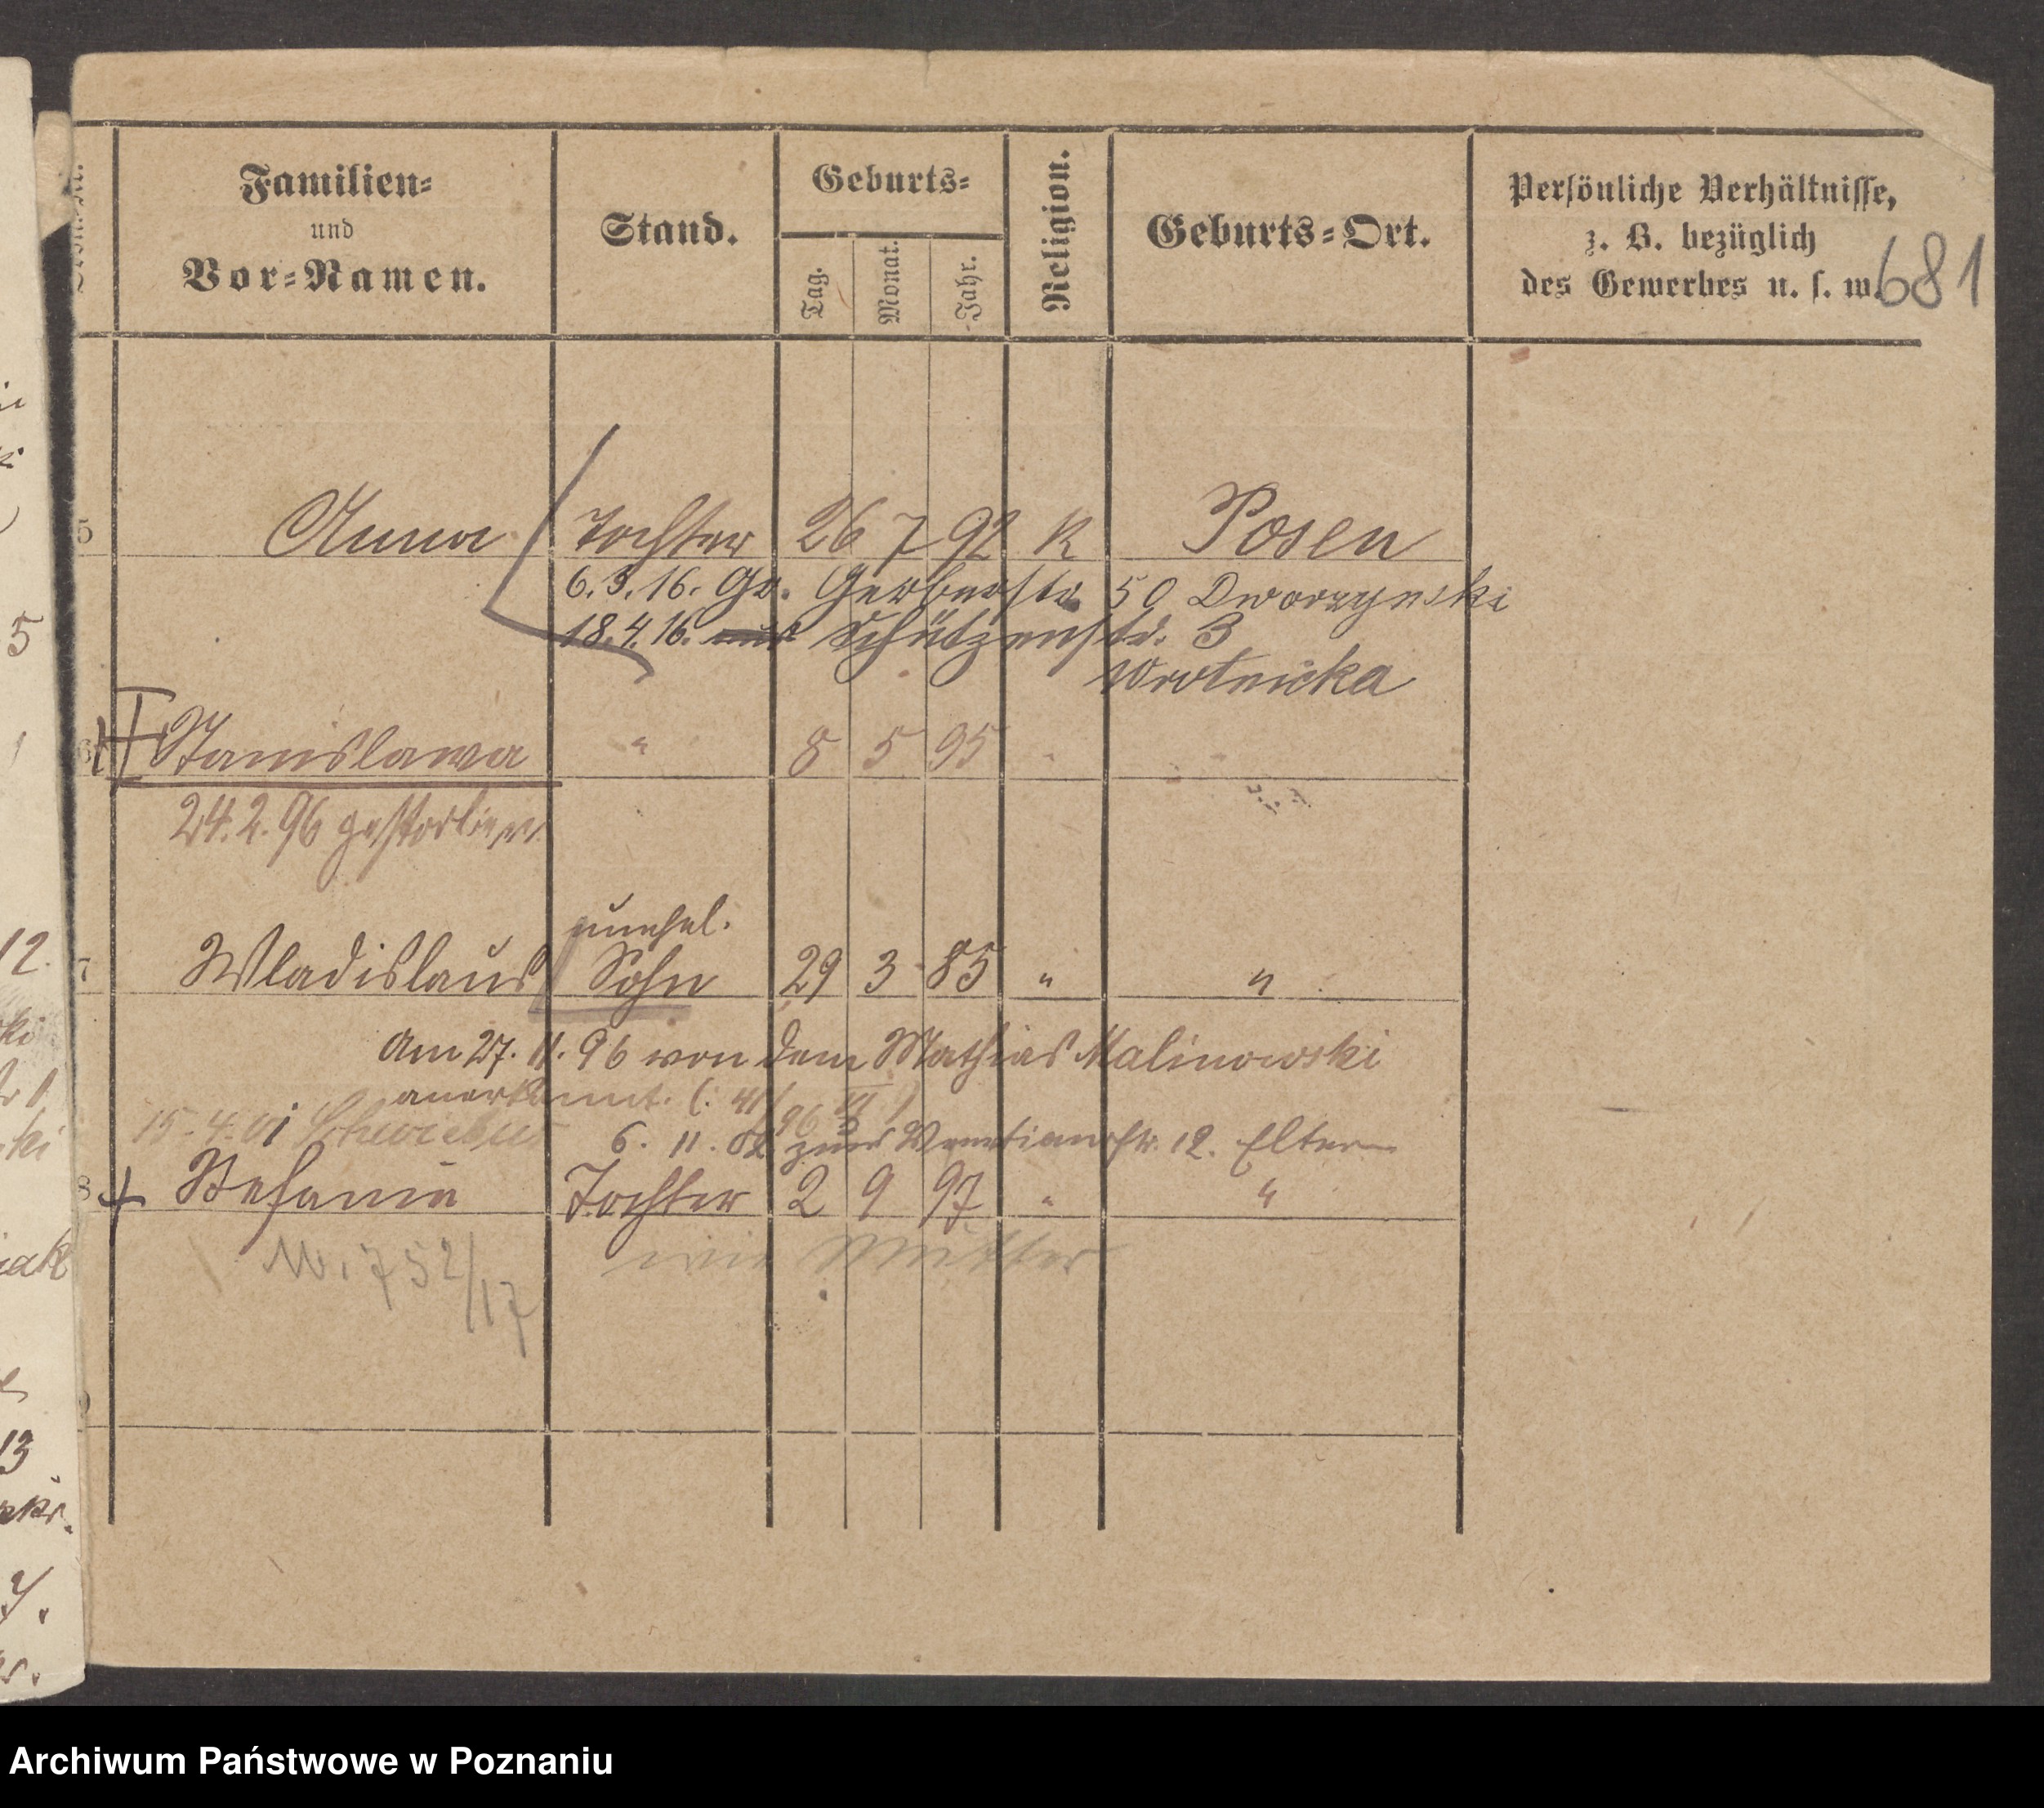 Familien=
und
Vor=Namen.
Stand.
Geburts=
Tag.
Monat.
Jahr.
Religion.
Geburts=Ort.
Persönliche Verhältnisse,
z. B. bezüglich
des Gewerbes u. s. w.
681
5 Anna Tochter 26 7 92 K Posen
6.3.16. Gr. Gerberstr. 50 Dworzynski
18.4.16. Schützenstr. 3
Wrotnicka
6 Stanislawa " 8 5 95
24.2.96 gestorben.
unehel.
7 Wladislaus Sohn 29 3 85 " "
Am 27. 11. 96 von dem Mathias Malinowski
anerkannt.
15.4.01 Schwiebus
6. 11. 02 zur Venetianerstr. 12. Eltern
8 Stefania Tochter 2 9 97 " "
wie Mutter
M. 752/17
5
12.
13
Archiwum Państwowe w Poznaniu